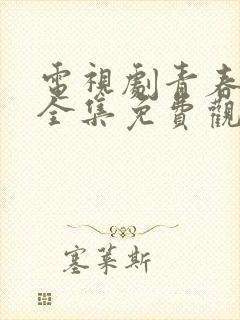 電視劇青春
全集免費觀
塞萊斯